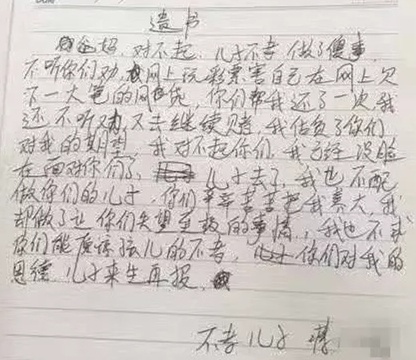 遗书
爸妈,对不起,儿子不孝做了傻事,
不听你们劝,网上玩彩票害自己在网上欠
下一大笔的网贷,你们帮我还了一次我
还不听劝又去继续赌,我估负了你们
对我的期望,我对不起你们,我已经没脸
在面对你们了,儿子去了,我也不配
做你们的儿子,你们辛辛苦苦把我养大,我
却做了让你们失望至极的事情,我也不求
你们能原谅孩儿的不孝,你们对我的
恩德儿子来生再报.
不孝儿子